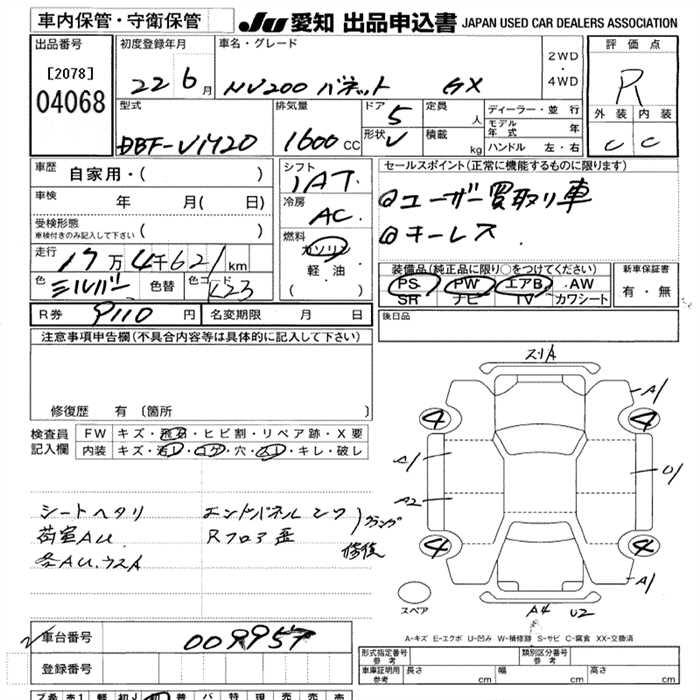 車内保管・守衛保管
JU 愛知 出品申込書 JAPAN USED CAR DEALERS ASSOCIATION
出品番号
[2078]
04068
初度登録年月
22 6月
車名・グレード
NV200 バネット GX
2WD
・
4WD
評価点
R
外装 内装
C C
型式
DBF-VM20
排気量
1600 CC
ドア 5
形状 V
定員 人
積載 kg
ディーラー・並行
モデル年式 年
ハンドル 左・右
車歴 自家用・( )
車検 年 月( 日)
受検形態
車検付きのみ記入して下さい ( )
走行 17万4千621km
色 シルバー 色替 色コード K23
R券 9110円 名変期限 月 日
シフト
IAT
冷房
AC
燃料
ガソリン
軽油・
( )
セールスポイント(正常に機能するものに限ります)
◎ユーザー買取り車
◎キーレス
装備品(純正品に限り○をつけてください)
PS PW エアB AW
SR ナビ TV カワシート
新車保証書
有・無
後日品
注意事項申告欄(不具合内容等は具体的に記入して下さい)
修復歴 有 [箇所 ]
検査員記入欄
FW キズ・飛石・ヒビ割・リペア跡・X要
内装 キズ・汚レ・コゲ・穴・スレ・キレ・破レ
シートヘタリ
荷室AU
各AU.ウスA
エンドパネル
Rフロア歪
修復
スリA
A1
4 4
A1
A2
U1
4 4
A1
A4 U2
スペア
A-キズ E-エクボ U-凹み W-補修跡 S-サビ C-腐食 XX-交換済
車台番号 009957
登録番号
形式指定番号 参考
類別区分番号 参考
車庫証明用 参考 長さ 幅 高さ
cm cm cm